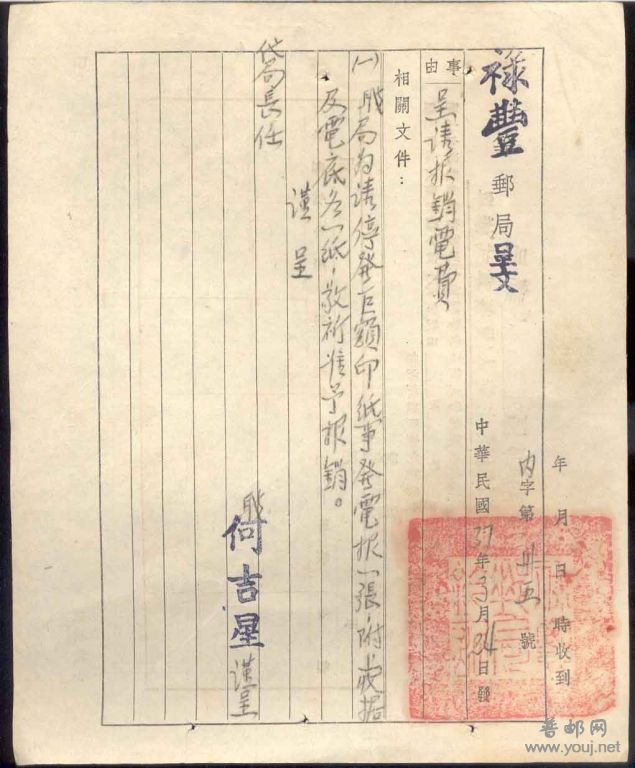 祿豐郵局呈文
年 月 日 時收到
內字第卅五號
中華民國37年3月24日發
事由
呈請報銷電費
相關文件：
(一) 職局為請停發巨額印紙事發電报一張，附收据
及電底各一紙，敬祈准予報銷。
謹呈
局長任
職 何吉星 謹呈
普邮网
www.youj.net